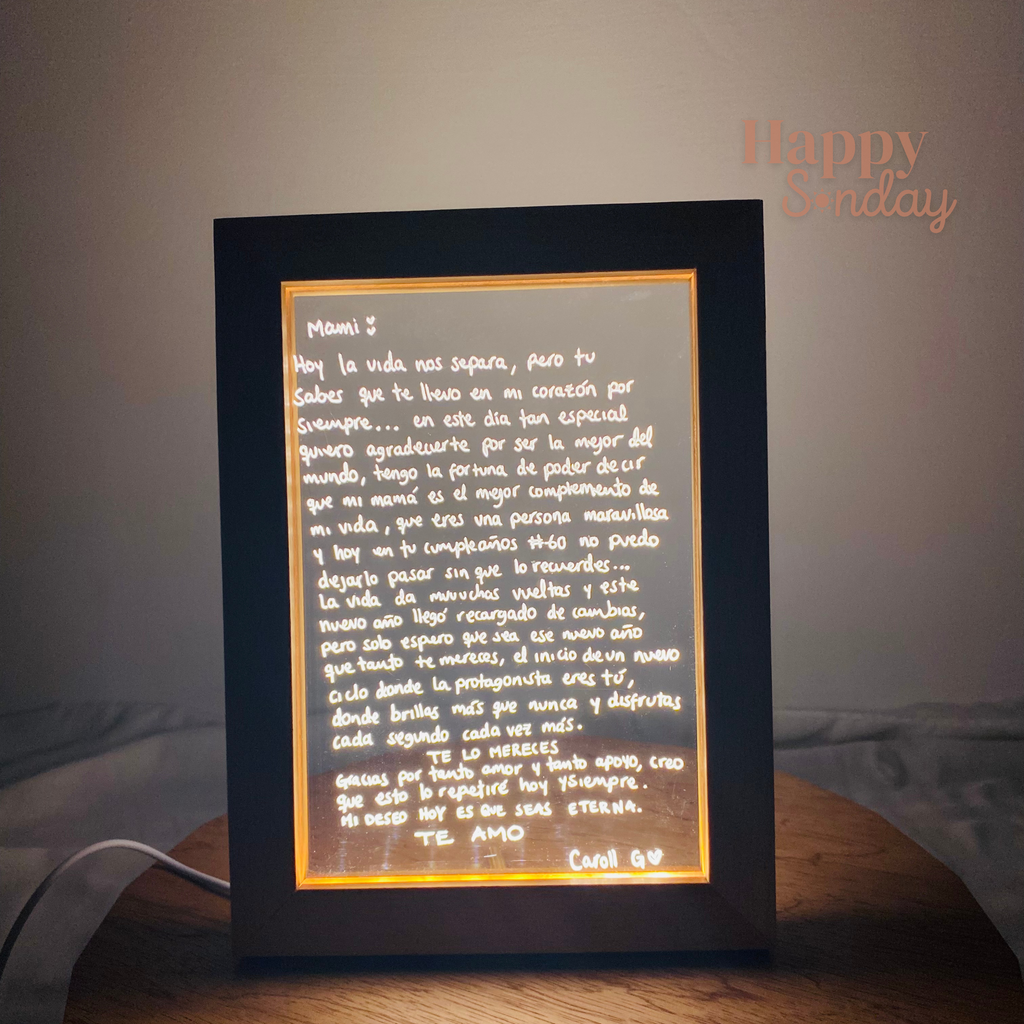 Happy
Sunday
Mami
Hoy la vida nos separa, pero tu
sabes que te llevo en mi corazón por
siempre... en este día tan especial
quiero agradecerte por ser la mejor del
mundo, tengo la fortuna de poder decir
que mi mamá es el mejor complemento de
mi vida, que eres una persona maravillosa
y hoy en tu cumpleaños #60 no puedo
dejarlo pasar sin que lo recuerdes...
La vida da muuuchas vueltas y este
nuevo año llegó recargado de cambios,
pero solo espero que sea ese nuevo año
que tanto te mereces, el inicio de un nuevo
ciclo donde la protagonista eres tú,
donde brillas más que nunca y disfrutas
cada segundo cada vez más.
TE LO MERECES
Gracias por tanto amor y tanto apoyo, creo
que esto lo repetiré hoy y siempre.
MI DESEO HOY ES QUE SEAS ETERNA.
TE AMO
Caroll G